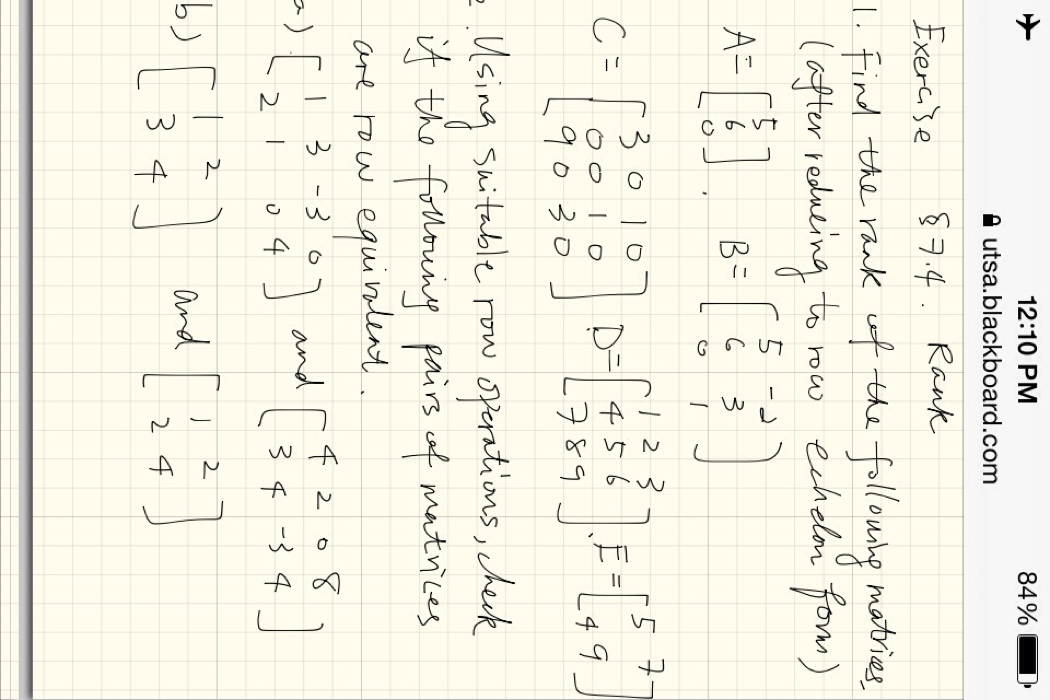 12:10 PM 84%
utsa.blackboard.com
Exercise § 7.4. Rank
1. Find the rank of the following matrices
(after reducing to row echelon form)
A = [5 6 0]. B = [5 -2
6 3
0 1]
C = [3 0 1 0
0 0 1 0
9 0 3 0] D = [1 2 3
4 5 6
7 8 9]. E = [5 7
4 9]
2. Using suitable row operations, check
if the following pairs of matrices
are row equivalent.
a) [1 3 -3 0
2 1 0 4] and [4 2 0 8
3 4 -3 4]
b) [1 2
3 4] and [1 2
2 4]